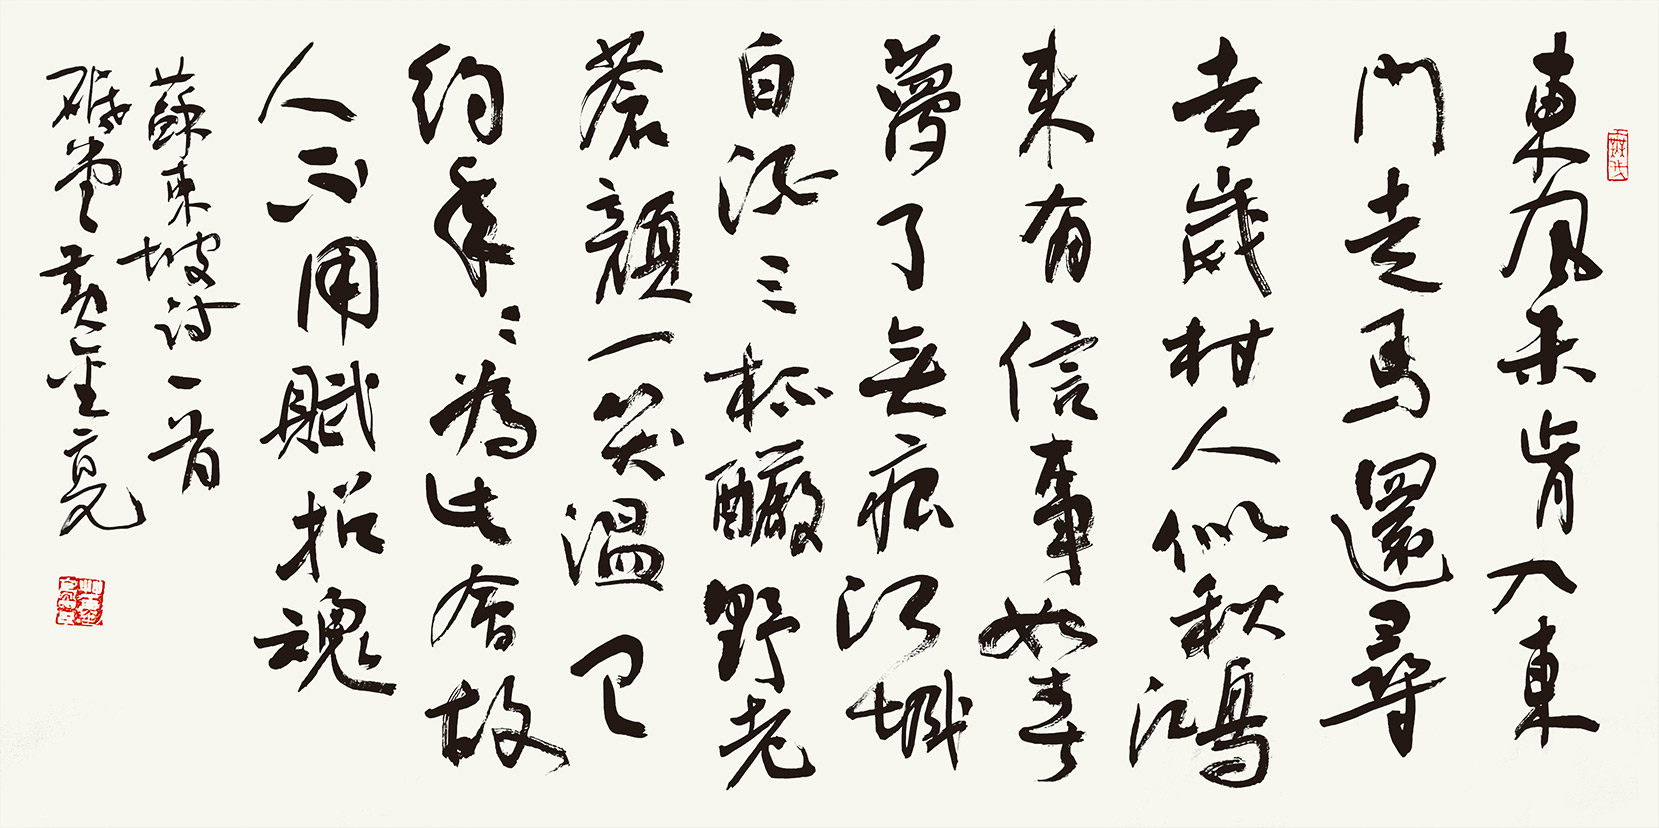 東風未肯入東
門走馬還尋
去歲村人似秋鴻
来有信事如春
夢了無痕江城
白酒三杯釅野老
蒼顏一笑温已
約年々為此會故
人不用賦招魂
蘇東坡詩一首
堂黄金亮